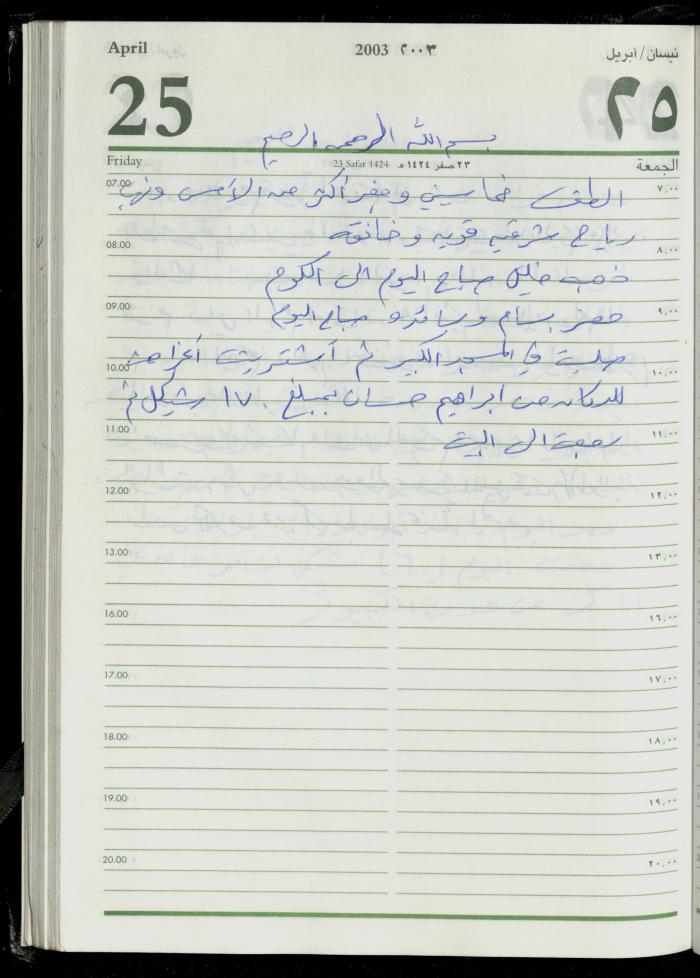 April 2003 ٢٠٠٣ نيسان/أبريل
25 ٢٥
بسم الله الرحمن الرحيم
Friday 23 Safar 1424 ٢٣ صفر ١٤٢٤ هـ الجمعة
07.00 ٧,٠٠
الطقس خماسيني ومغبر أكثر من الأمس وتهب
رياح شرقيه قويه وخانقه
08.00 ٨,٠٠
ذهب خليل صباح اليوم الى الكوم
09.00 ٩,٠٠
حضر بسام وسائد صباح اليوم
صليت في المسجد الكبير ثم أشتريت أغراض
10.00 ١٠,٠٠
للدكان من ابراهيم حسان بمبلغ ١٧٠ شيكل ثم
11.00 ١١,٠٠
رجعت الى البيت
12.00 ١٢,٠٠
13.00 ١٣,٠٠
16.00 ١٦,٠٠
17.00 ١٧,٠٠
18.00 ١٨,٠٠
19.00 ١٩,٠٠
20.00 ٢٠,٠٠